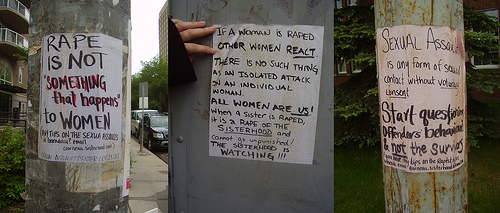 RAPE
IS NOT
"SOMETHING
that happens"
to WOMEN
IF A WOMAN IS RAPED
OTHER WOMEN REACT
THERE IS NO SUCH THING
AS AN ISOLATED ATTACK
ON AN INDIVIDUAL
WOMAN.
ALL WOMEN ARE US!
When a SISTER IS RAPED,
it is a RAPE OF THE
SISTERHOOD and
cannot go unpunished!
THE SISTERHOOD IS
WATCHING!!!
SEXUAL
is any form of sexual
contact without
consent
Start questioning
offenders behaviour
& not the